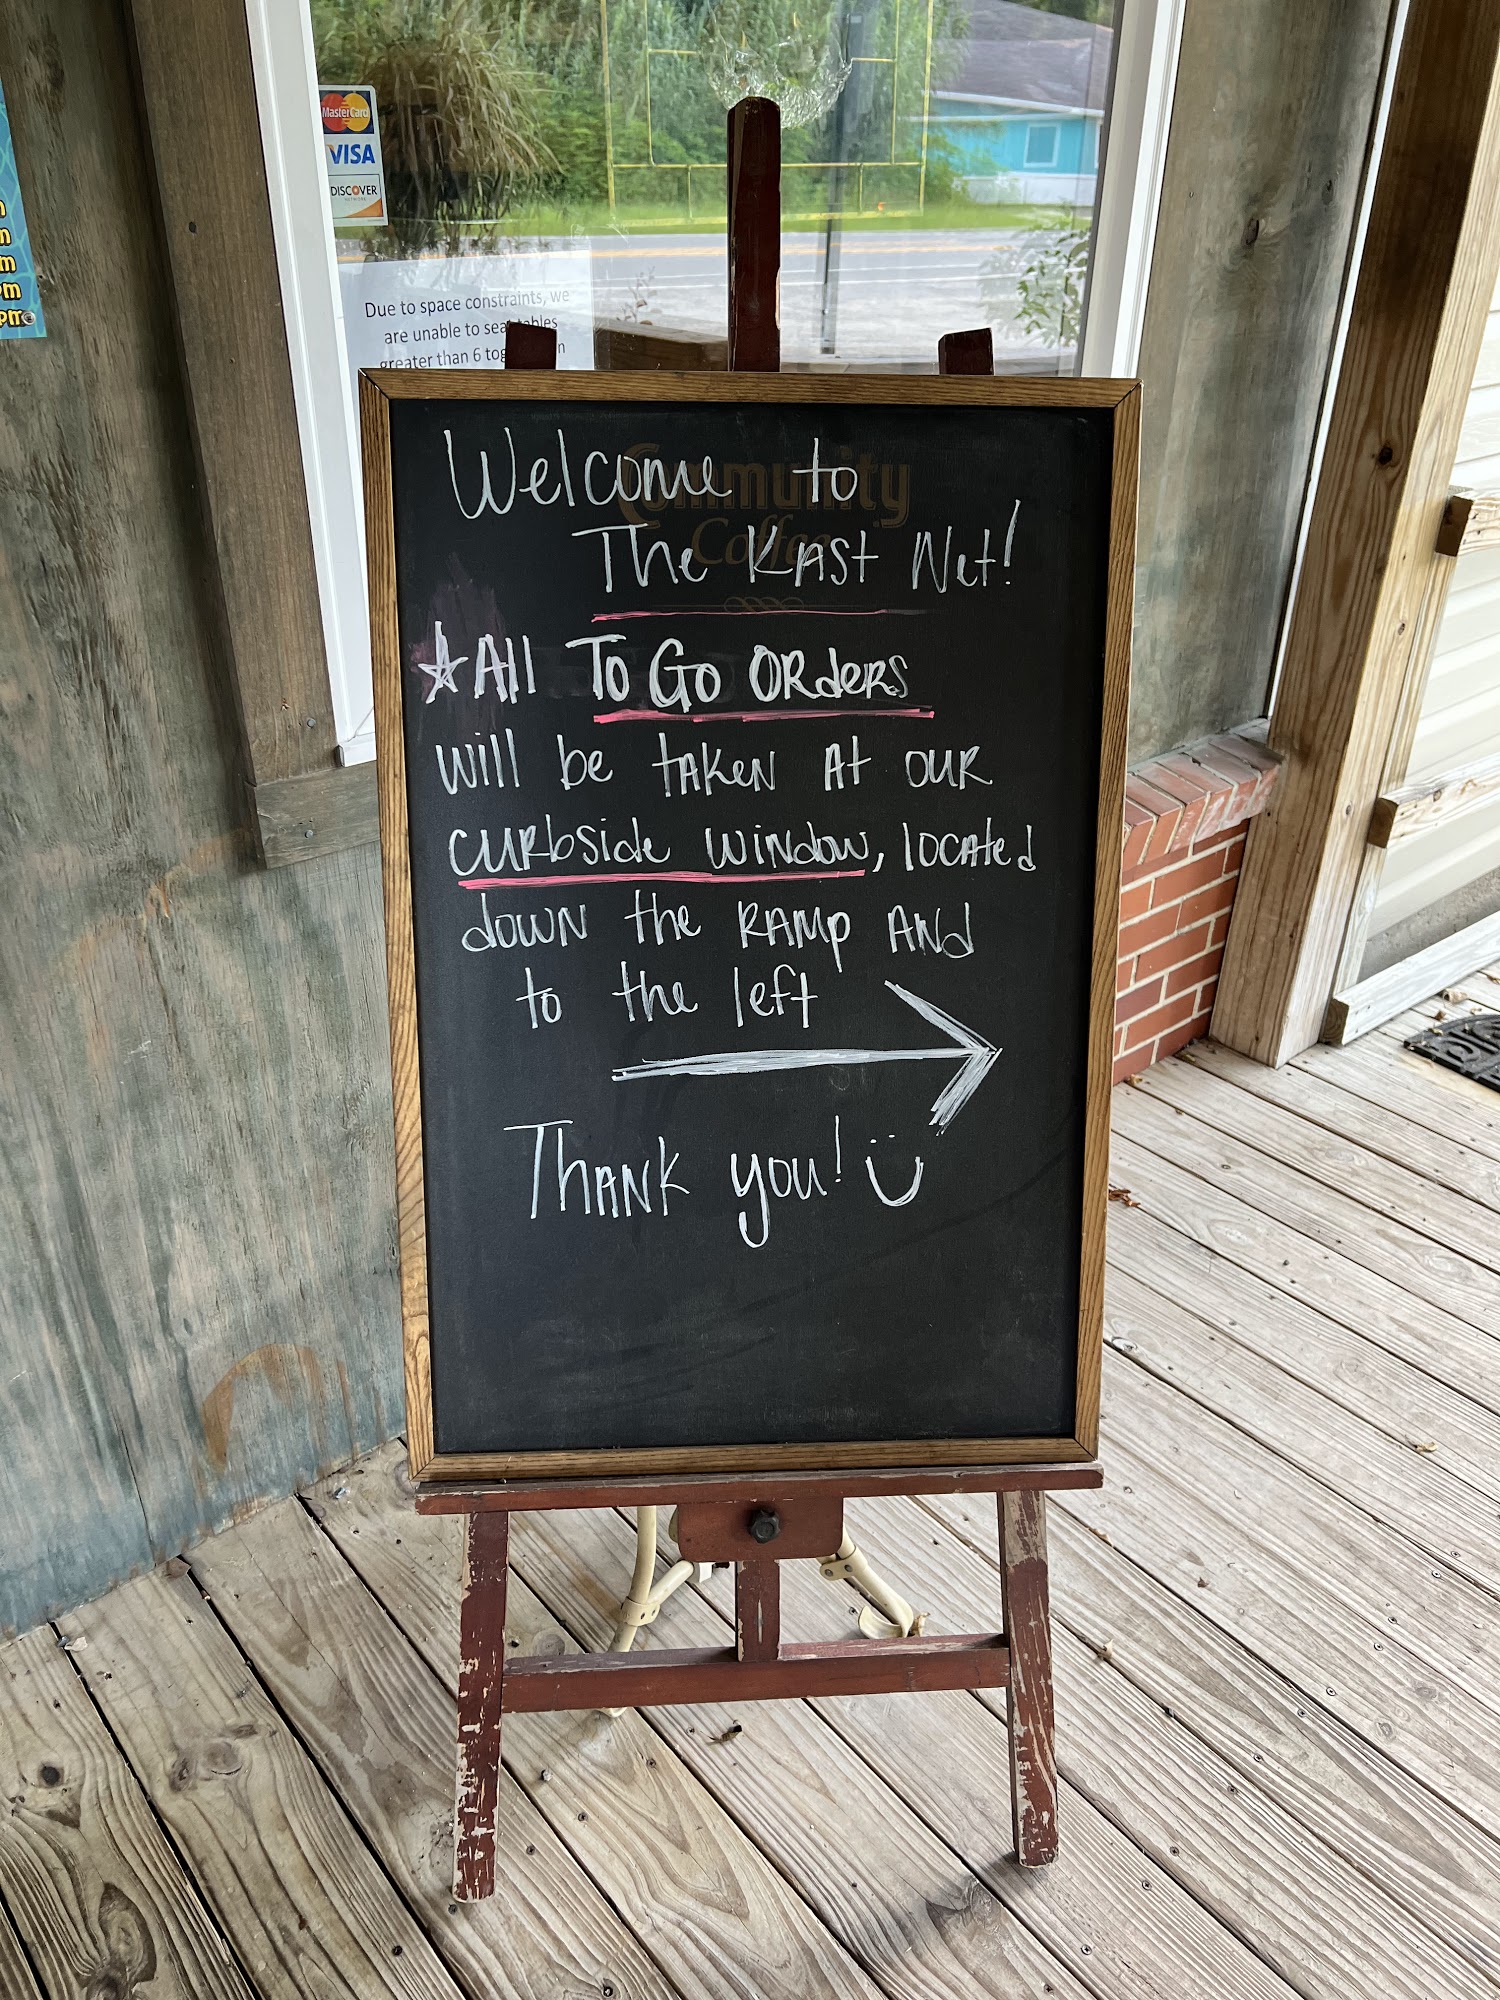 MasterCard
VISA
DISCOVER
NETWORK
Due to space constraints, we
are unable to seat tables
greater than 6
Community
Coffee
Welcome to
The Kast Net!
All To Go Orders
will be taken at our
curbside window, located
down the ramp and
to the left
Thank you!